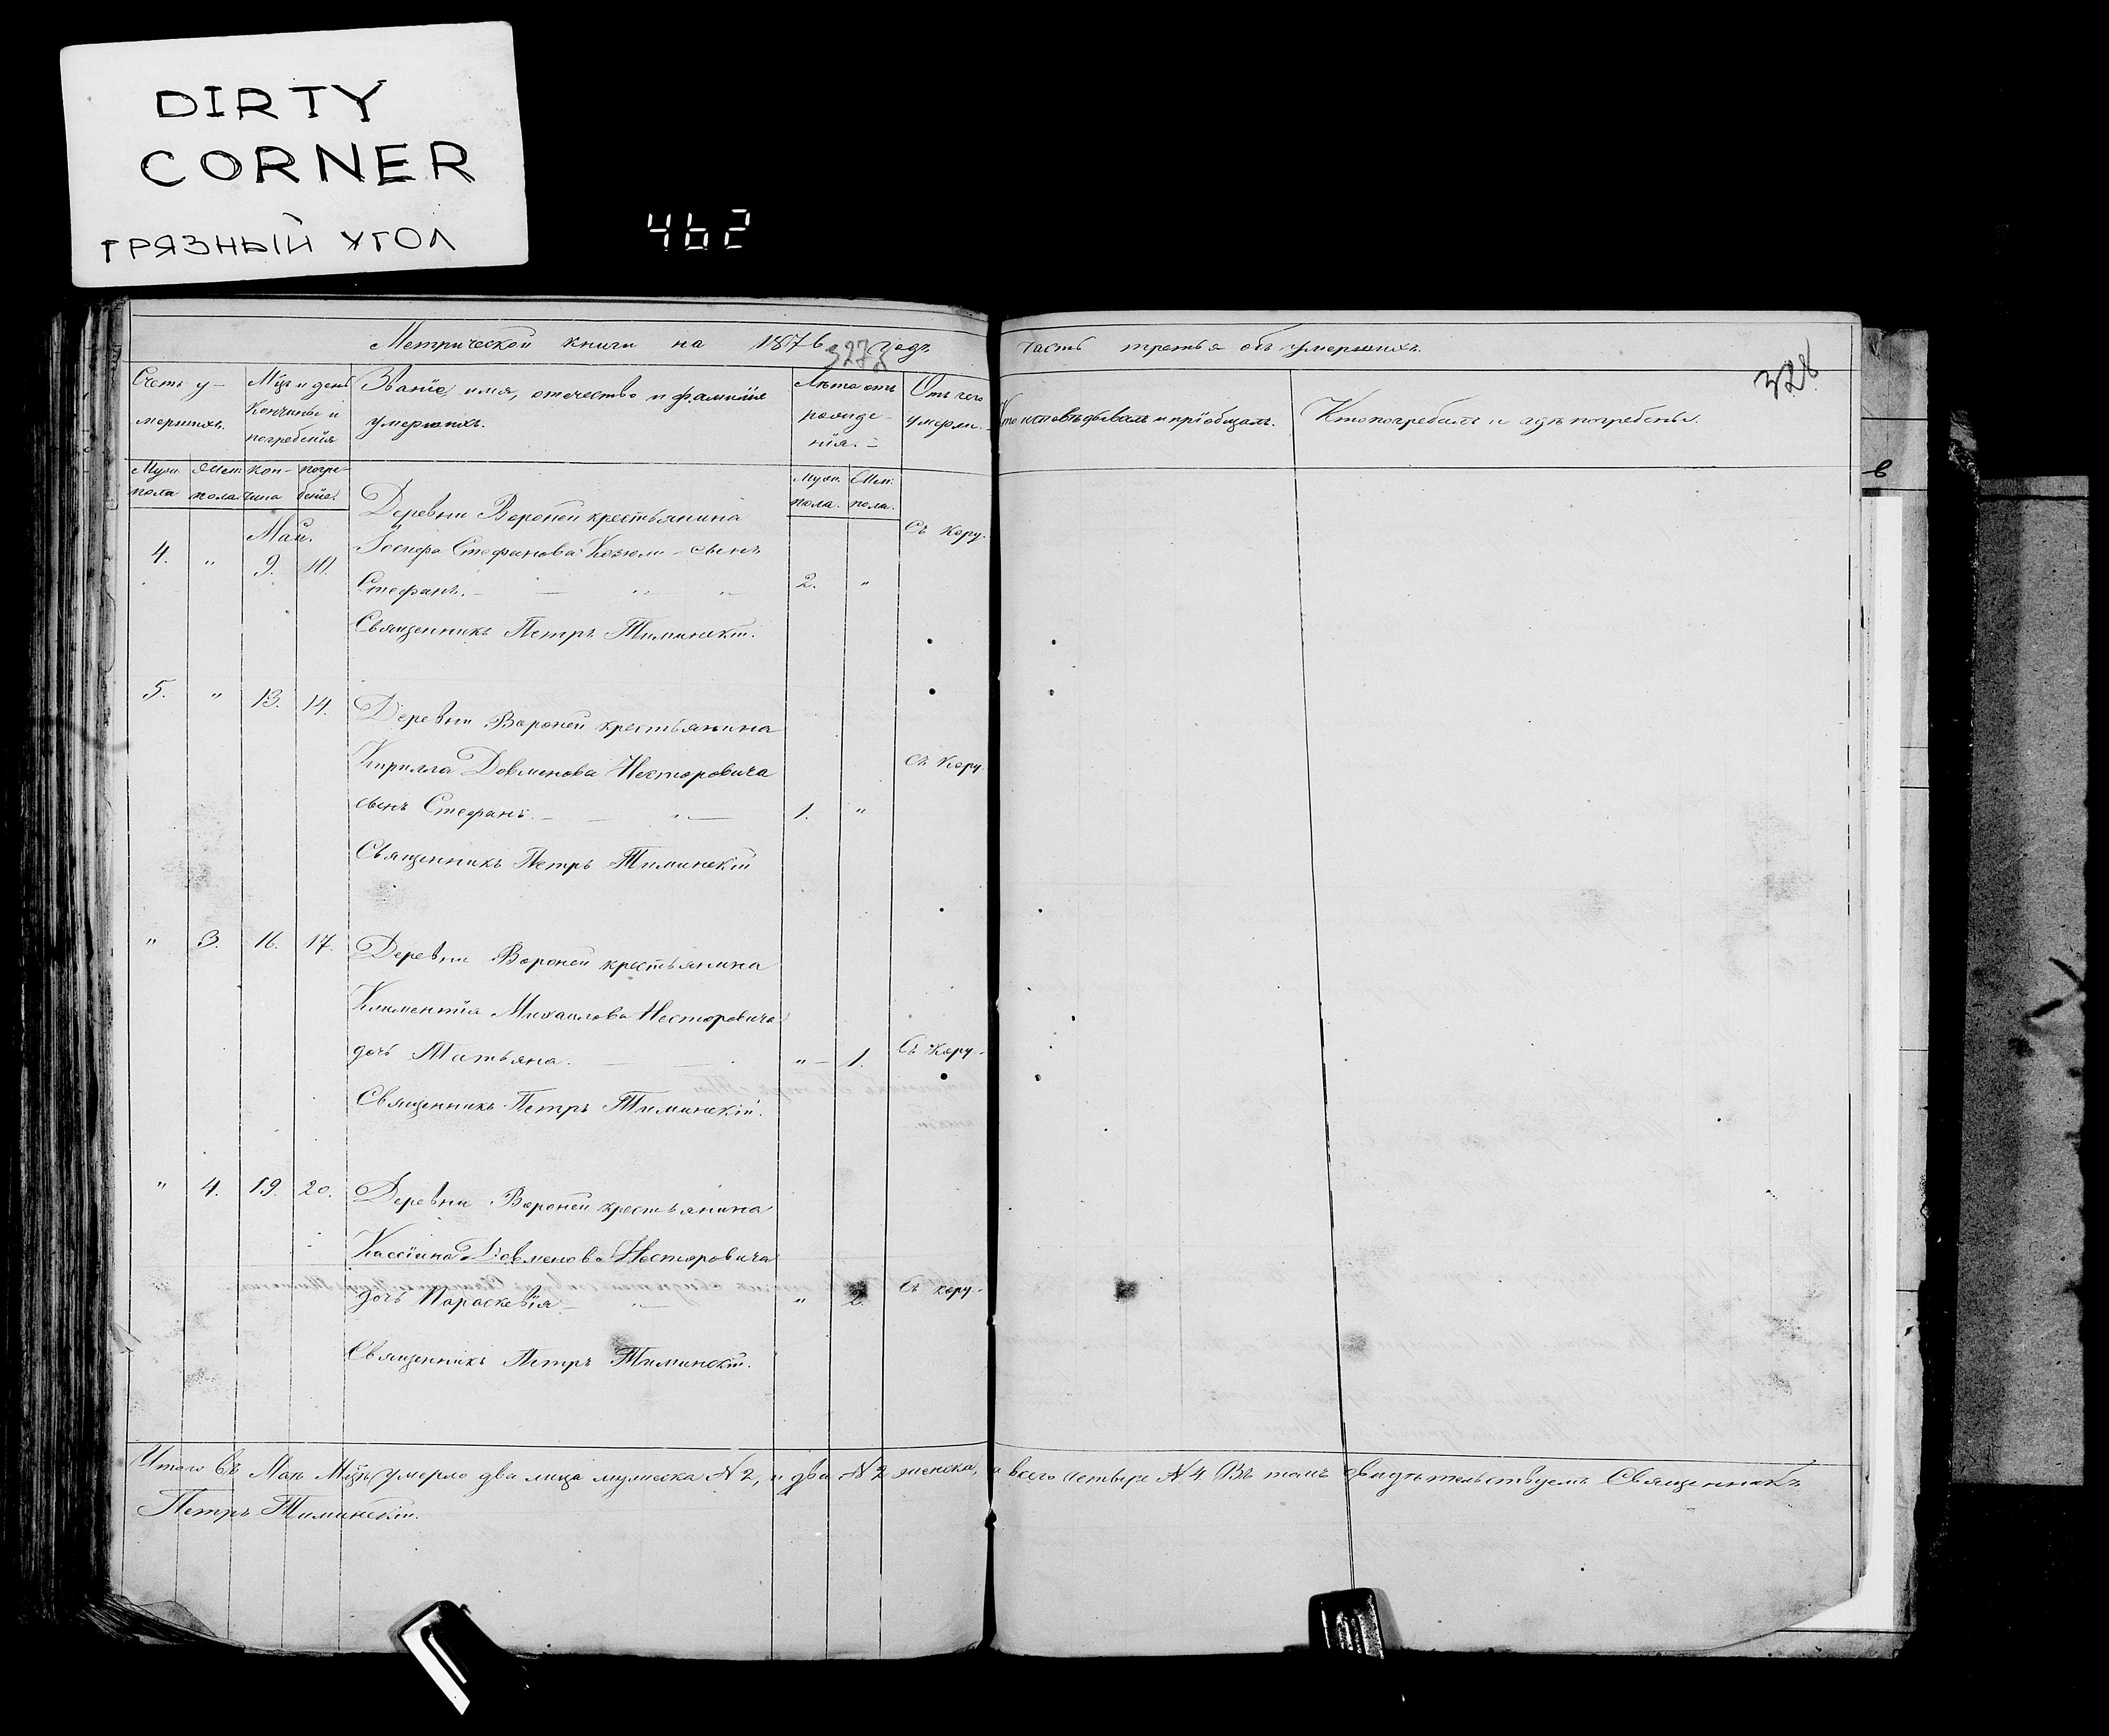 DIRTY
CORNER
ГРЯЗНЫЙ УГОЛ
462
Метрической книги на 1876 годъ
часть третья объ умершихъ.
328
Счетъ у-
мершихъ.
Мцъ и день
кончины и
погребенія
Званіе, имя, отчество и фамилія
умершихъ.
Лѣта отъ
рожде-
нія.
Отъ чего
умерли.
Кто исповѣдывалъ и пріобщалъ.
Кто погребалъ и гдѣ погребены.
Муж. пола
Жен. пола
кон-чина
погре-беніе
Муж. пола.
Жен. пола.
Май.
4. " 9. 10.
Деревни Вороней крестьянина
Стефанова Козюли сынъ
Стефанъ. 2. "
Съ кору.
Священникъ Петръ Тиминскій.
5. " 13. 14.
Деревни Вороней крестьянина
Кирилла Довменова Несторовича
сынъ Стефанъ. 1. "
Съ кору.
Священникъ Петръ Тиминскій
" 3. 16. 17.
Деревни Вороней крестьянина
Климентія Михаилова Несторовича
дочь Татьяна. " 1.
Съ кору.
Священникъ Петръ Тиминскій.
" 4. 19. 20.
Деревни Вороней крестьянина
Кассіана Довменова Несторовича
дочь Параскевія " 2.
Съ кору.
Священникъ Петръ Тиминскій.
Итого въ Маѣ Мцѣ умерло два лица мужеска № 2, и два № 2 женска, а всего четыре № 4 Въ томъ свидѣтельствуемъ Священникъ
Петръ Тиминскій.